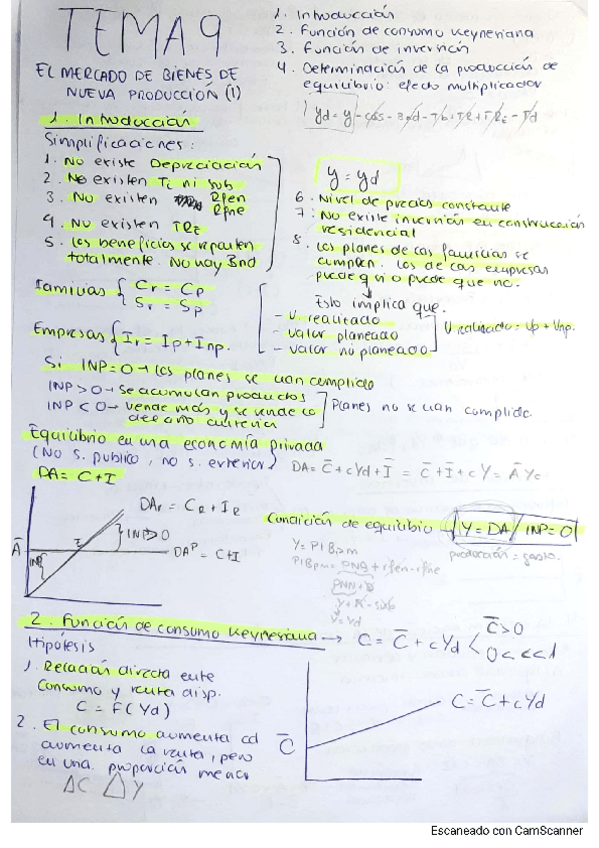 TEMA 9
EL MERCADO DE BIENES DE
NUEVA PRODUCCIÓN (1)
1. Introducción
2. Función de consumo keynesiana
3. Función de inversión
4. Determinación de la producción de
equilibrio: efecto multiplicador
1. Introducción
Simplificaciones:
1. No existe Depreciación
2. No existen Ti ni sub
3. No existen Rfen
Rfne
4. No existen TRe
5. Los beneficios se reparten
totalmente. No hay Bnd
y = yd
6. Nivel de precios constante
7. No existe inversión en construcción
residencial
8. Los planes de las familias se
cumplen. Los de las empresas
puede q si o puede que no.
Esto implica que.
- V. realizado
- valor planeado
- valor no planeado
V realizado = Vp + Vnp.
Familias { Cr = Cp
Sr = Sp
Empresas { Ir = Ip + Inp.
Si INP = 0 → Los planes se van cumplido
INP > 0 → Se acumulan productos
INP < 0 → vende más y se vende lo
de año anterior
Planes no se van cumplido.
Equilibrio en una economía privada
(No s. público, no s. exterior)
DA = C + I
DA = C̄ + cYd + Ī = C̄ + Ī + cY = Ā Yc
DAr = CR + IR
INP > 0
DAᴾ = C + I
Ā
INP
Condición de equilibrio Y = DA / INP = 0
producción = gasto.
Y = PIBpm
PIBpm = PNB + rfen - rfne
PNN + D
2. Función de consumo keynesiana → C = C̄ + cYd < C̄ > 0
0 < c < 1
Hipótesis
1. Relación directa entre
Consumo y renta disp.
C = F(Yd)
2. El consumo aumenta cd
aumenta la renta, pero
en una proporción menor
ΔC △ Y
C = C̄ + cYd
C̄
Escaneado con CamScanner